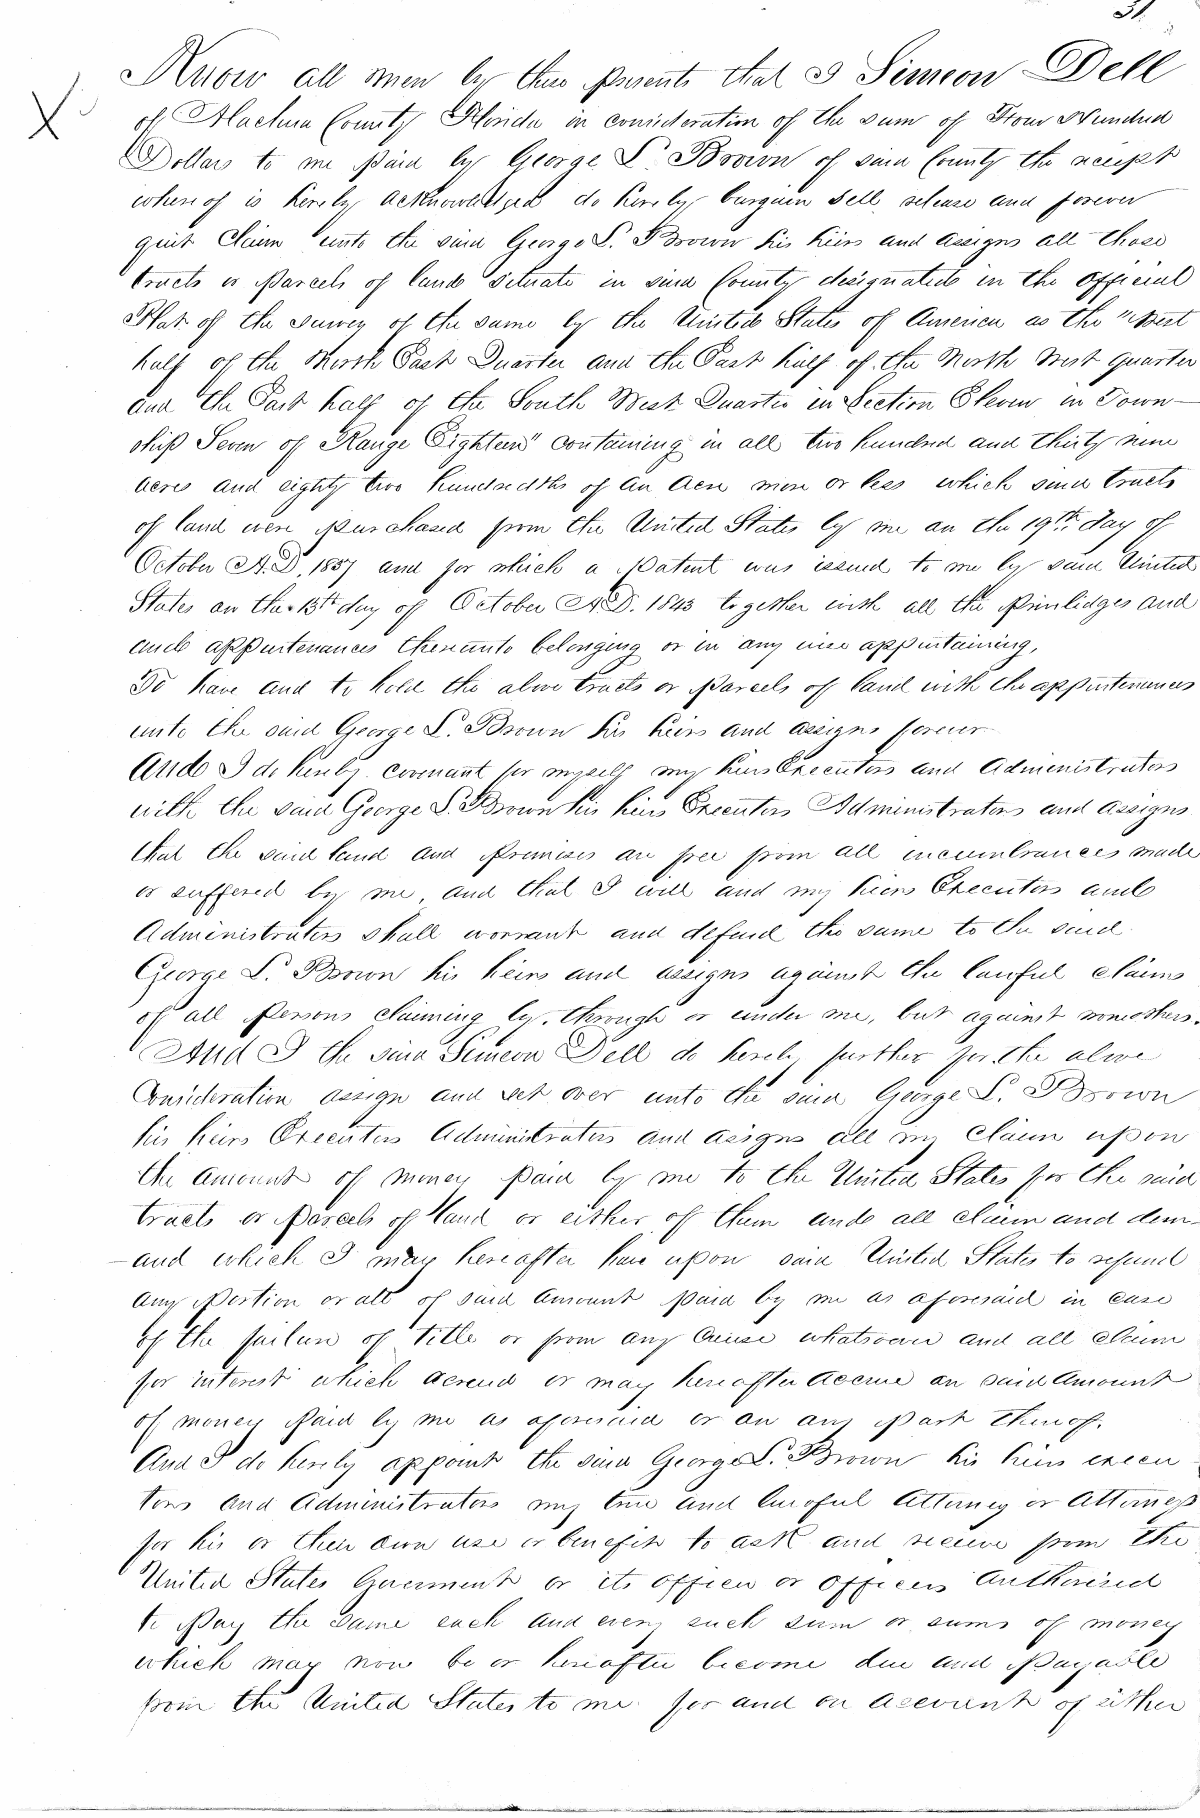 31
X
Know all men by these presents that I Simeon Dell
of Alachua County Florida in consideration of the sum of Four Hundred
Dollars to me paid by George L. Brown of said County the receipt
whereof is hereby acknowledged do hereby bargain sell release and forever
quit Claim unto the said George L. Brown his heirs and assigns all those
tracts or parcels of land situate in said County designated in the official
Plat of the survey of the same by the United States of America as the "West
half of the North East Quarter and the East half of the North West quarter
and the East half of the South West Quarter in Section Eleven in Town-
ship Seven of Range Eighteen" containing in all two hundred and thirty nine
acres and eighty two hundredths of an acre more or less which said tracts
of land were purchased from the United States by me on the 19th day of
October A.D. 1837 and for which a patent was issued to me by said United
States on the 15th day of October A.D. 1843 together with all the Priviledges and
and appurtenances thereunto belonging or in any wise appurtaining,
To have and to hold the above tracts or parcels of land with the appurtenances
unto the said George L. Brown his heirs and assigns forever
And I do hereby covenant for myself my heirs Executors and Administrators
with the said George L. Brown his heirs Executors Administrators and assigns
that the said land and premises are free from all incumbrances made
or suffered by me, and that I will and my heirs Executors and
Administrators shall warrant and defend the same to the said
George L. Brown his heirs and assigns against the lawful claims
of all Persons claiming by, through or under me, but against none others.
And I the said Simeon Dell do hereby further for the above
Consideration assign and set over unto the said George L. Brown
his heirs Executors Administrators and asigns all my Claim upon
the amount of money paid by me to the United States for the said
tracts or parcels of land or either of them and all claim and dem-
-and which I may hereafter have upon said United States to refund
any portion or all of said amount paid by me as aforesaid in case
of the failure of title or from any Cause whatsoever and all claim
for interest which acrued or may hereafter accrue on said amount
of money paid by me as aforesaid or on any part thereof.
And I do hereby appoint the said George L. Brown his heirs execu
tors and Administrators my true and lawful Attorney or Attorneys
for his or their own use or benefit to ask and receive from the
United States Government or its officer or officers authorised
to pay the same each and every such sum or sums of money
which may now be or hereafter become due and payable
from the United States to me for and on account of either